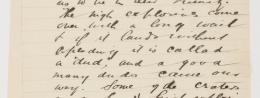 The high explosive come
over with a long wail
& if it lands without
exploding it is called
a dud, and a good
many duds came our
way. Some gde crater